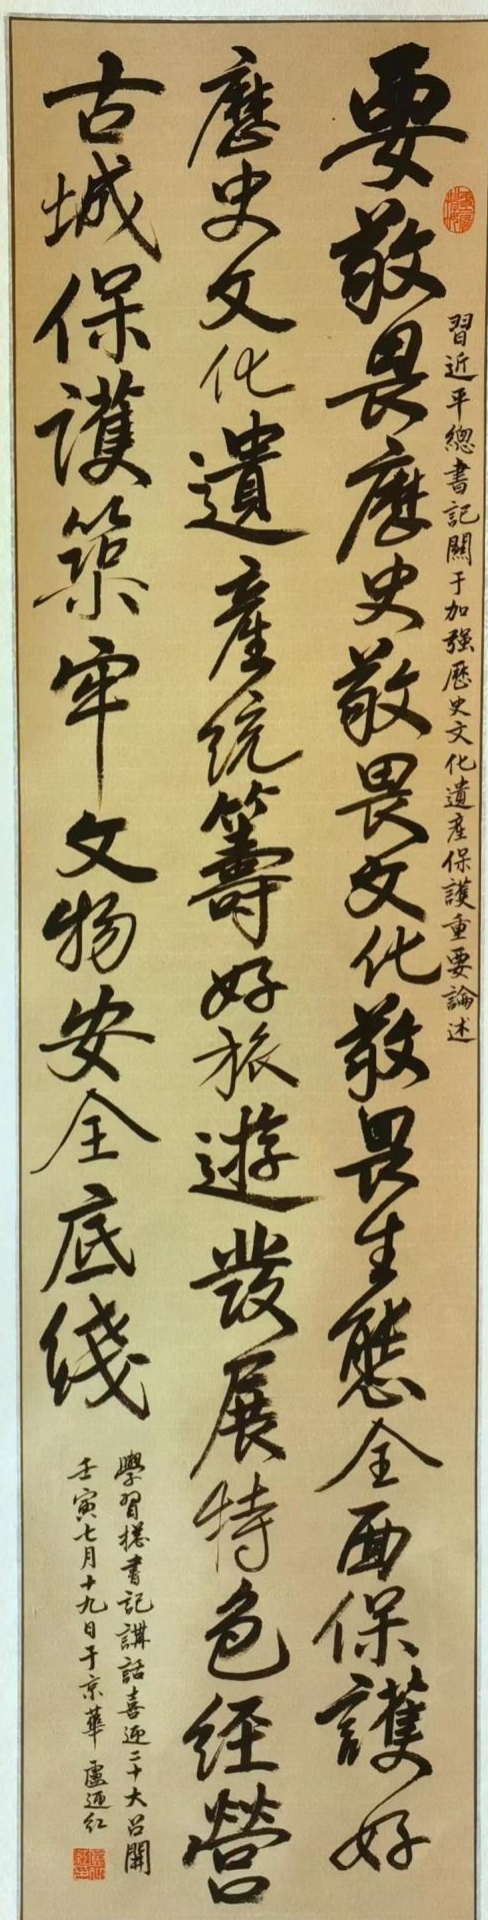 習近平總書記關于加强歷史文化遺産保護重要論述
要敬畏歷史敬畏文化敬畏生態全面保護好
歷史文化遺産統籌好旅遊發展特色經營
古城保護築牢文物安全底綫
學習總書記講話喜迎二十大召開
壬寅七月十九日于京華 盧迎紅